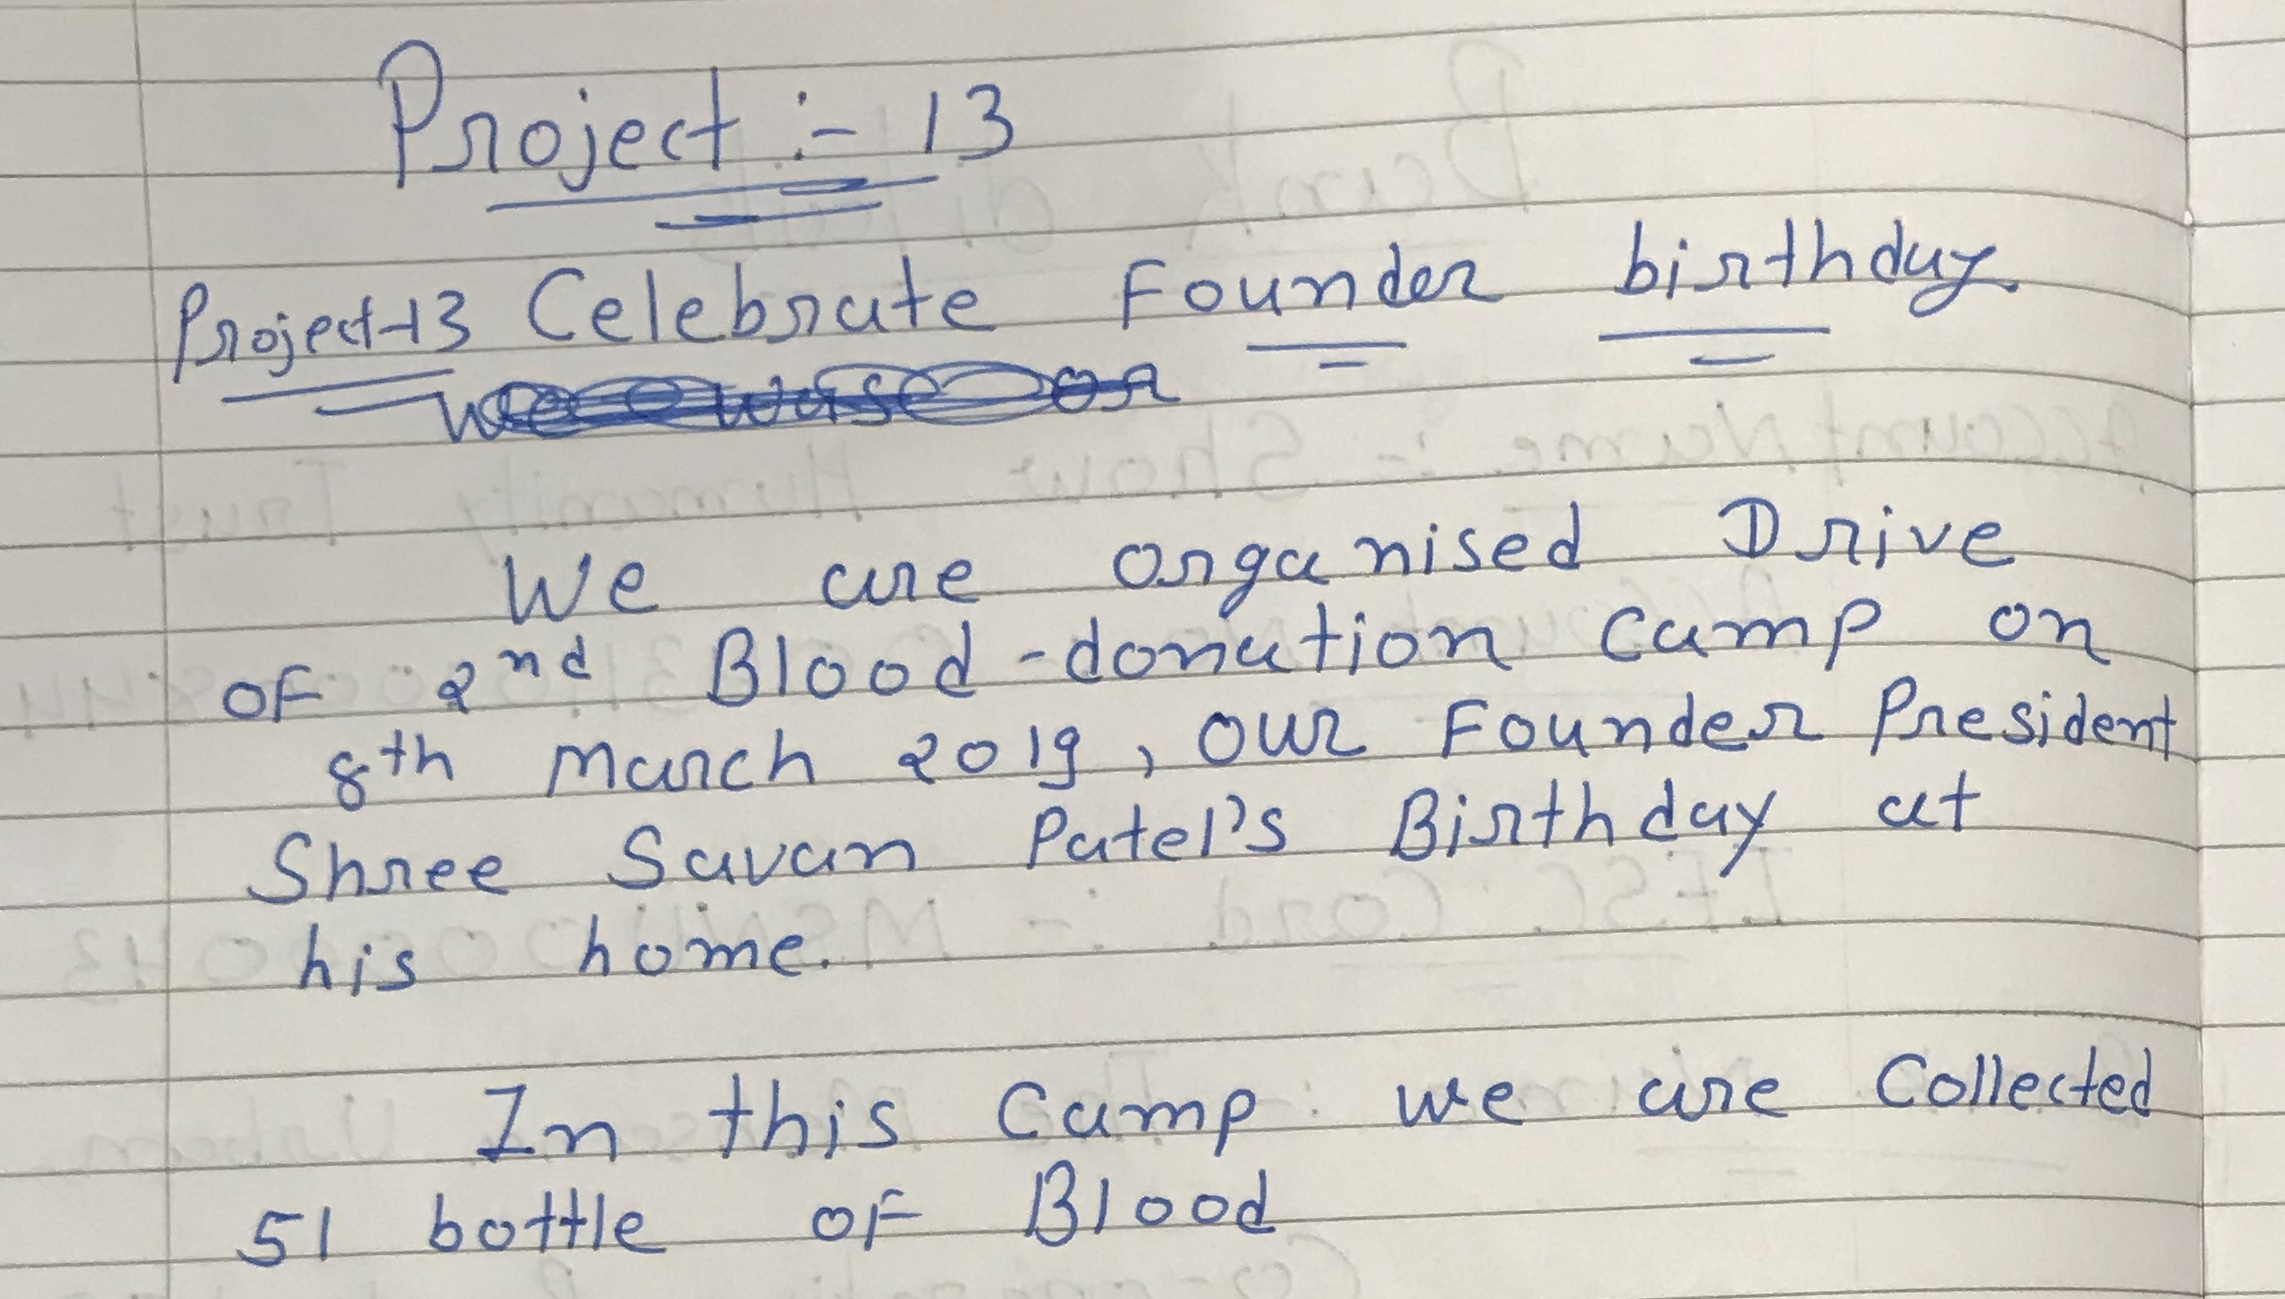 Project :- 13
Project-13 Celebrate Founder birthday
We are organised Drive
of 2nd Blood-donation Camp on
8th march 2019, our Founder President
Shree Savan Patel's Birthday at
his home.
In this Camp we are Collected
51 bottle of Blood